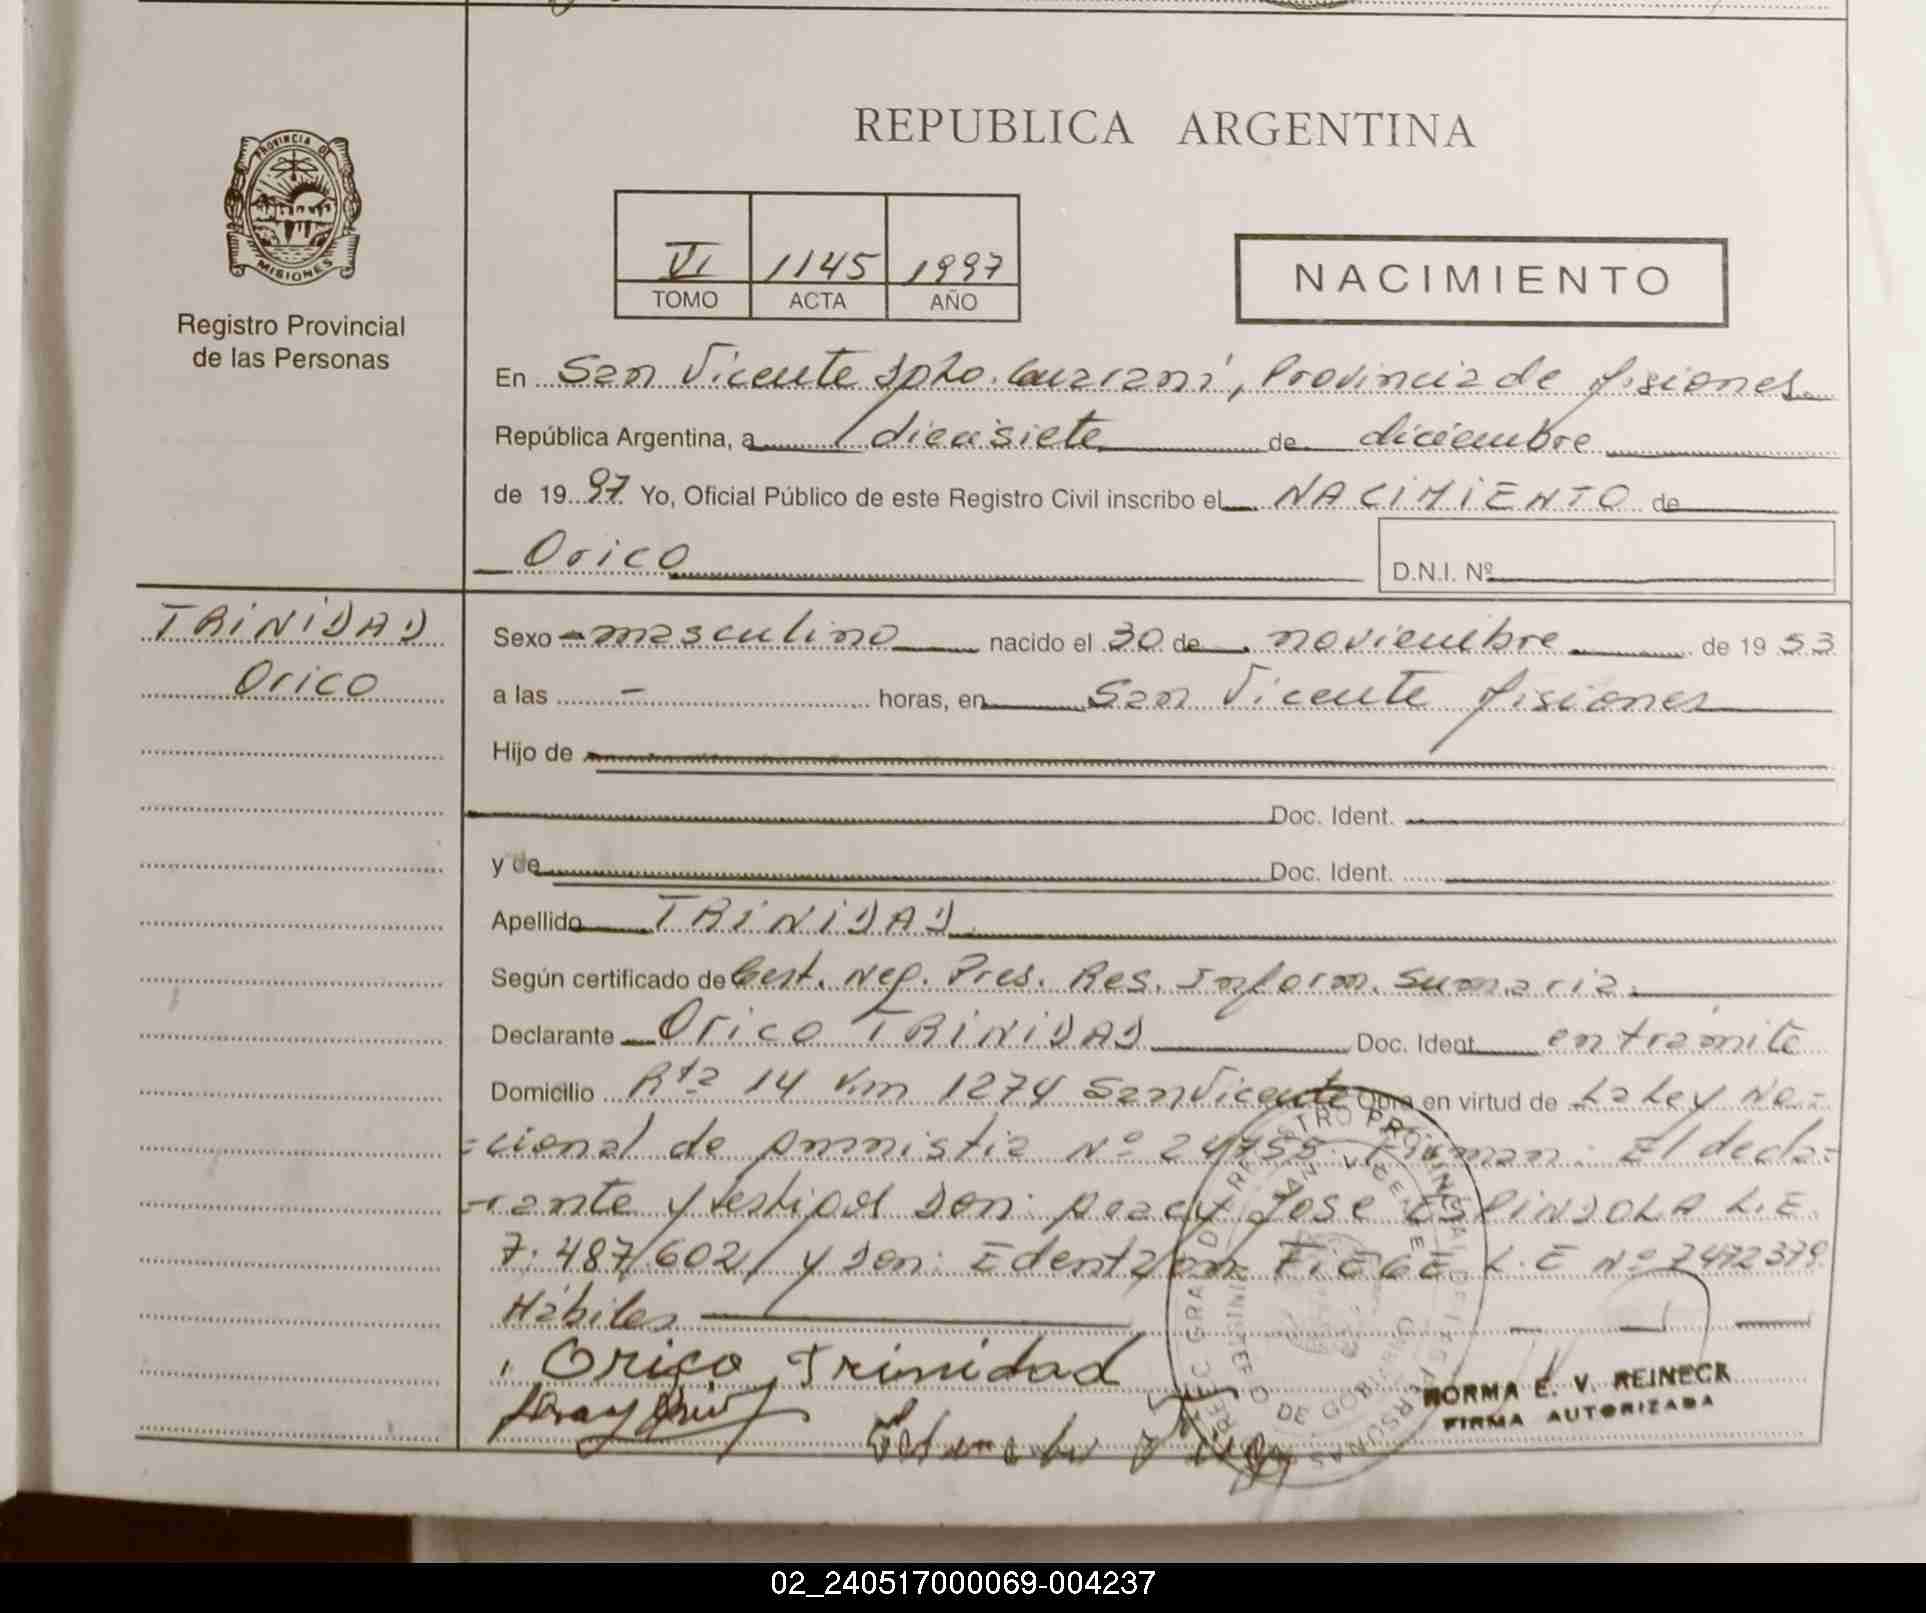 REPUBLICA ARGENTINA
PROVINCIA DE
MISIONES
Registro Provincial
de las Personas
VI 1145 1997
TOMO ACTA AÑO
NACIMIENTO
En San Vicente Dpto. Guarani, Provincia de Misiones
República Argentina, a diecisiete de diciembre
de 1997 Yo, Oficial Público de este Registro Civil inscribo el NACIMIENTO de
Orico
D.N.I. Nº
TRINIDAD
Orico
Sexo masculino nacido el 30 de noviembre de 1953
a las - horas, en San Vicente Misiones
Hijo de
Doc. Ident.
y de Doc. Ident.
Apellido TRINIDAD
Según certificado de Cert. Neg. Pres. Res. Inform. Sumaria
Declarante Orico TRINIDAD Doc. Ident. en trámite
Domicilio Rta 14 Km 1274 San Vicente Obra en virtud de La Ley Na-
cional de Amnistia Nº 24755. Firman: El decla-
rante y testigos Don: Jose ESPINDOLA L.E.
7.487.602 y Don: FIEGE L.E Nº 7472379
Hábiles
Orico Trinidad
NORMA E. V. REINECK
FIRMA AUTORIZADA
02_240517000069-004237